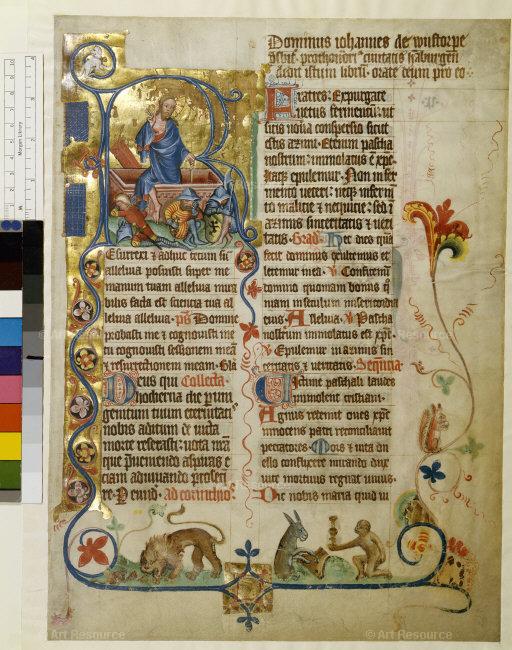 Dominus iohannes de wustorpe
dedit istum librum orate deum pro eo
Fratres: Expurgate
vetus fermentum: ut
sitis nova conspersio sicut
estis azimi. Etenim pascha
nostrum: immolatus ē xp̄c
Itaqȝ epulemur. Non in fer
mento veteri: neqȝ in fermēto
malicie ⁊ nequicie: sed ī
azimis sinceritatis ⁊ veri
tatis. Grad. Hec dies quā
fecit dominus exultemus et
letemur in ea. V Confitemini
domino quoniam bonus qm̄
in seculum misericordia
eius. Alleluia. V Pascha
nostrum immolatus est xp̄c.
V Epulemur in azimis sin
ceritatis ⁊ veritatis. Sequēcia.
Victime paschali laudes
immolent cristiani.
Agnus redemit oves xp̄c
innocens patri reconciliavit
peccatores. Mors ⁊ vita du
ello conflixere mirando dux
vite mortuus regnat vivus.
Dic nobis maria quid vi
Resurrexi ⁊ adhuc tecum sū
alleluia posuisti super me
manum tuam alleluia mira
bilis facta est scientia tua al
leluia alleluia. ps Domine
probasti me ⁊ cognovisti me
tu cognovisti sessionem meā
⁊ resurrectionem meam. Glā
Deus qui Collecta
hodierna die per uni
genitum tuum eternitatis
nobis aditum de victa
morte reserasti: vota nr̄a
que preveniendo aspiras
eciam adiuvando proseque
re. Per eund. ad corinthios
Morgan Library
© Art Resource
© Art Resource
© Art Resource
© Art Resource